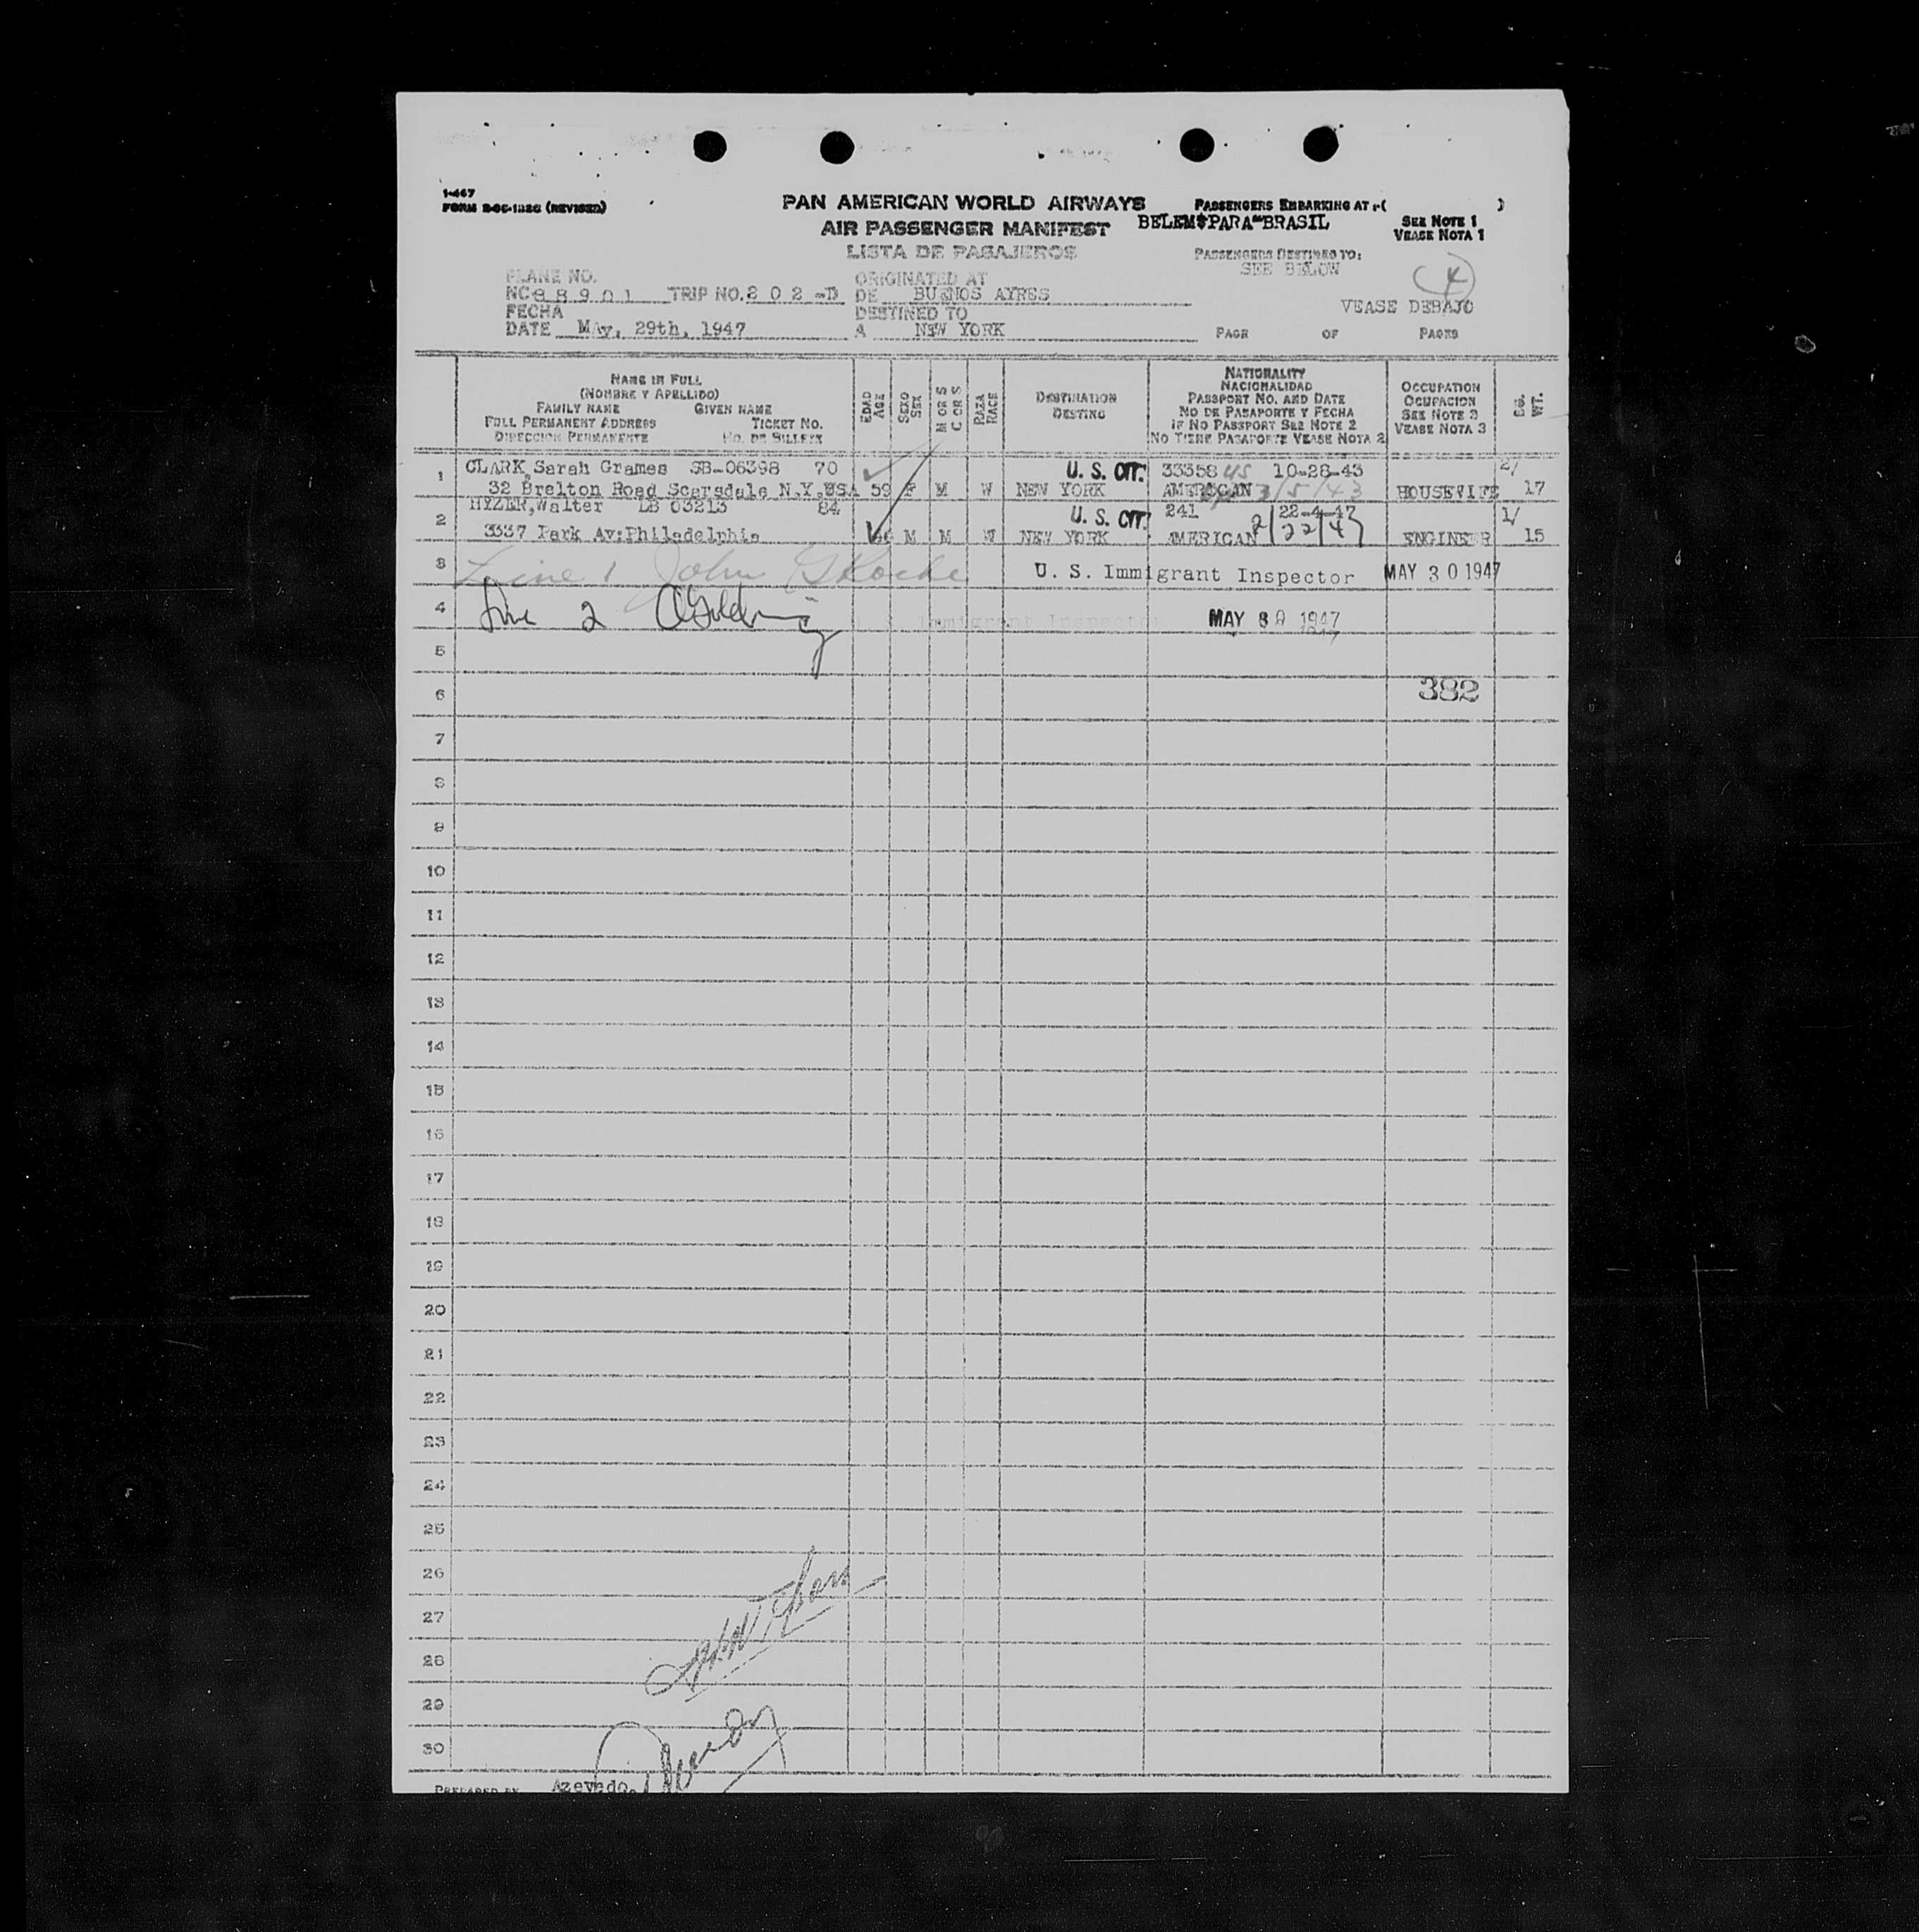 1-467
FORM B-OC-1026 (REVISED)
PAN AMERICAN WORLD AIRWAYS
AIR PASSENGER MANIFEST
LISTA DE PASAJEROS
PASSENGERS EMBARKING AT :-( )
BELEM PARA BRASIL
SEE NOTE 1
VEASE NOTA 1
PASSENGERS DESTINED TO:
SEE BELOW
4
VEASE DEBAJO
PLANE NO.
NC 88901 TRIP NO. 202-D
FECHA
DATE May, 29th, 1947
ORIGINATED AT
DE BUENOS AYRES
DESTINED TO
A NEW YORK
PAGE OF PAGES
NAME IN FULL
(NOMBRE Y APELLIDO)
FAMILY NAME GIVEN NAME
FULL PERMANENT ADDRESS TICKET NO.
DIRECCION PERMANENTE NO. DE BILLETE
EDAD
AGE
SEXO
SEX
M OR S
C OR S
RAZA
RACE
DESTINATION
DESTINO
NATIONALITY
NACIONALIDAD
PASSPORT NO. AND DATE
NO DE PASAPORTE Y FECHA
IF NO PASSPORT SEE NOTE 2
NO TIENE PASAPORTE VEASE NOTA 2
OCCUPATION
OCUPACION
SEE NOTE 3
VEASE NOTA 3
WT.
1 CLARK, Sarah Grames SB-06398 70 U. S. CIT. 33358 US 10-28-43 2/
32 Brelton Road Scarsdale N.Y. USA 59 F M W NEW YORK AMERICAN 3/5/43 HOUSEWIFE 17
2 HYZER, Walter LB 03213 84 U. S. CIT. 241 22-4-47 1/
3337 Park Av: Philadelphia M M W NEW YORK AMERICAN 2/22/47 ENGINEER 15
3 Line 1 John U. S. Immigrant Inspector MAY 30 1947
4 Line 2 Immigrant Inspector MAY 30 1947
5
6 382
7
8
9
10
11
12
13
14
15
16
17
18
19
20
21
22
23
24
25
26
27
28
29
30
PREPARED BY Azevedo.